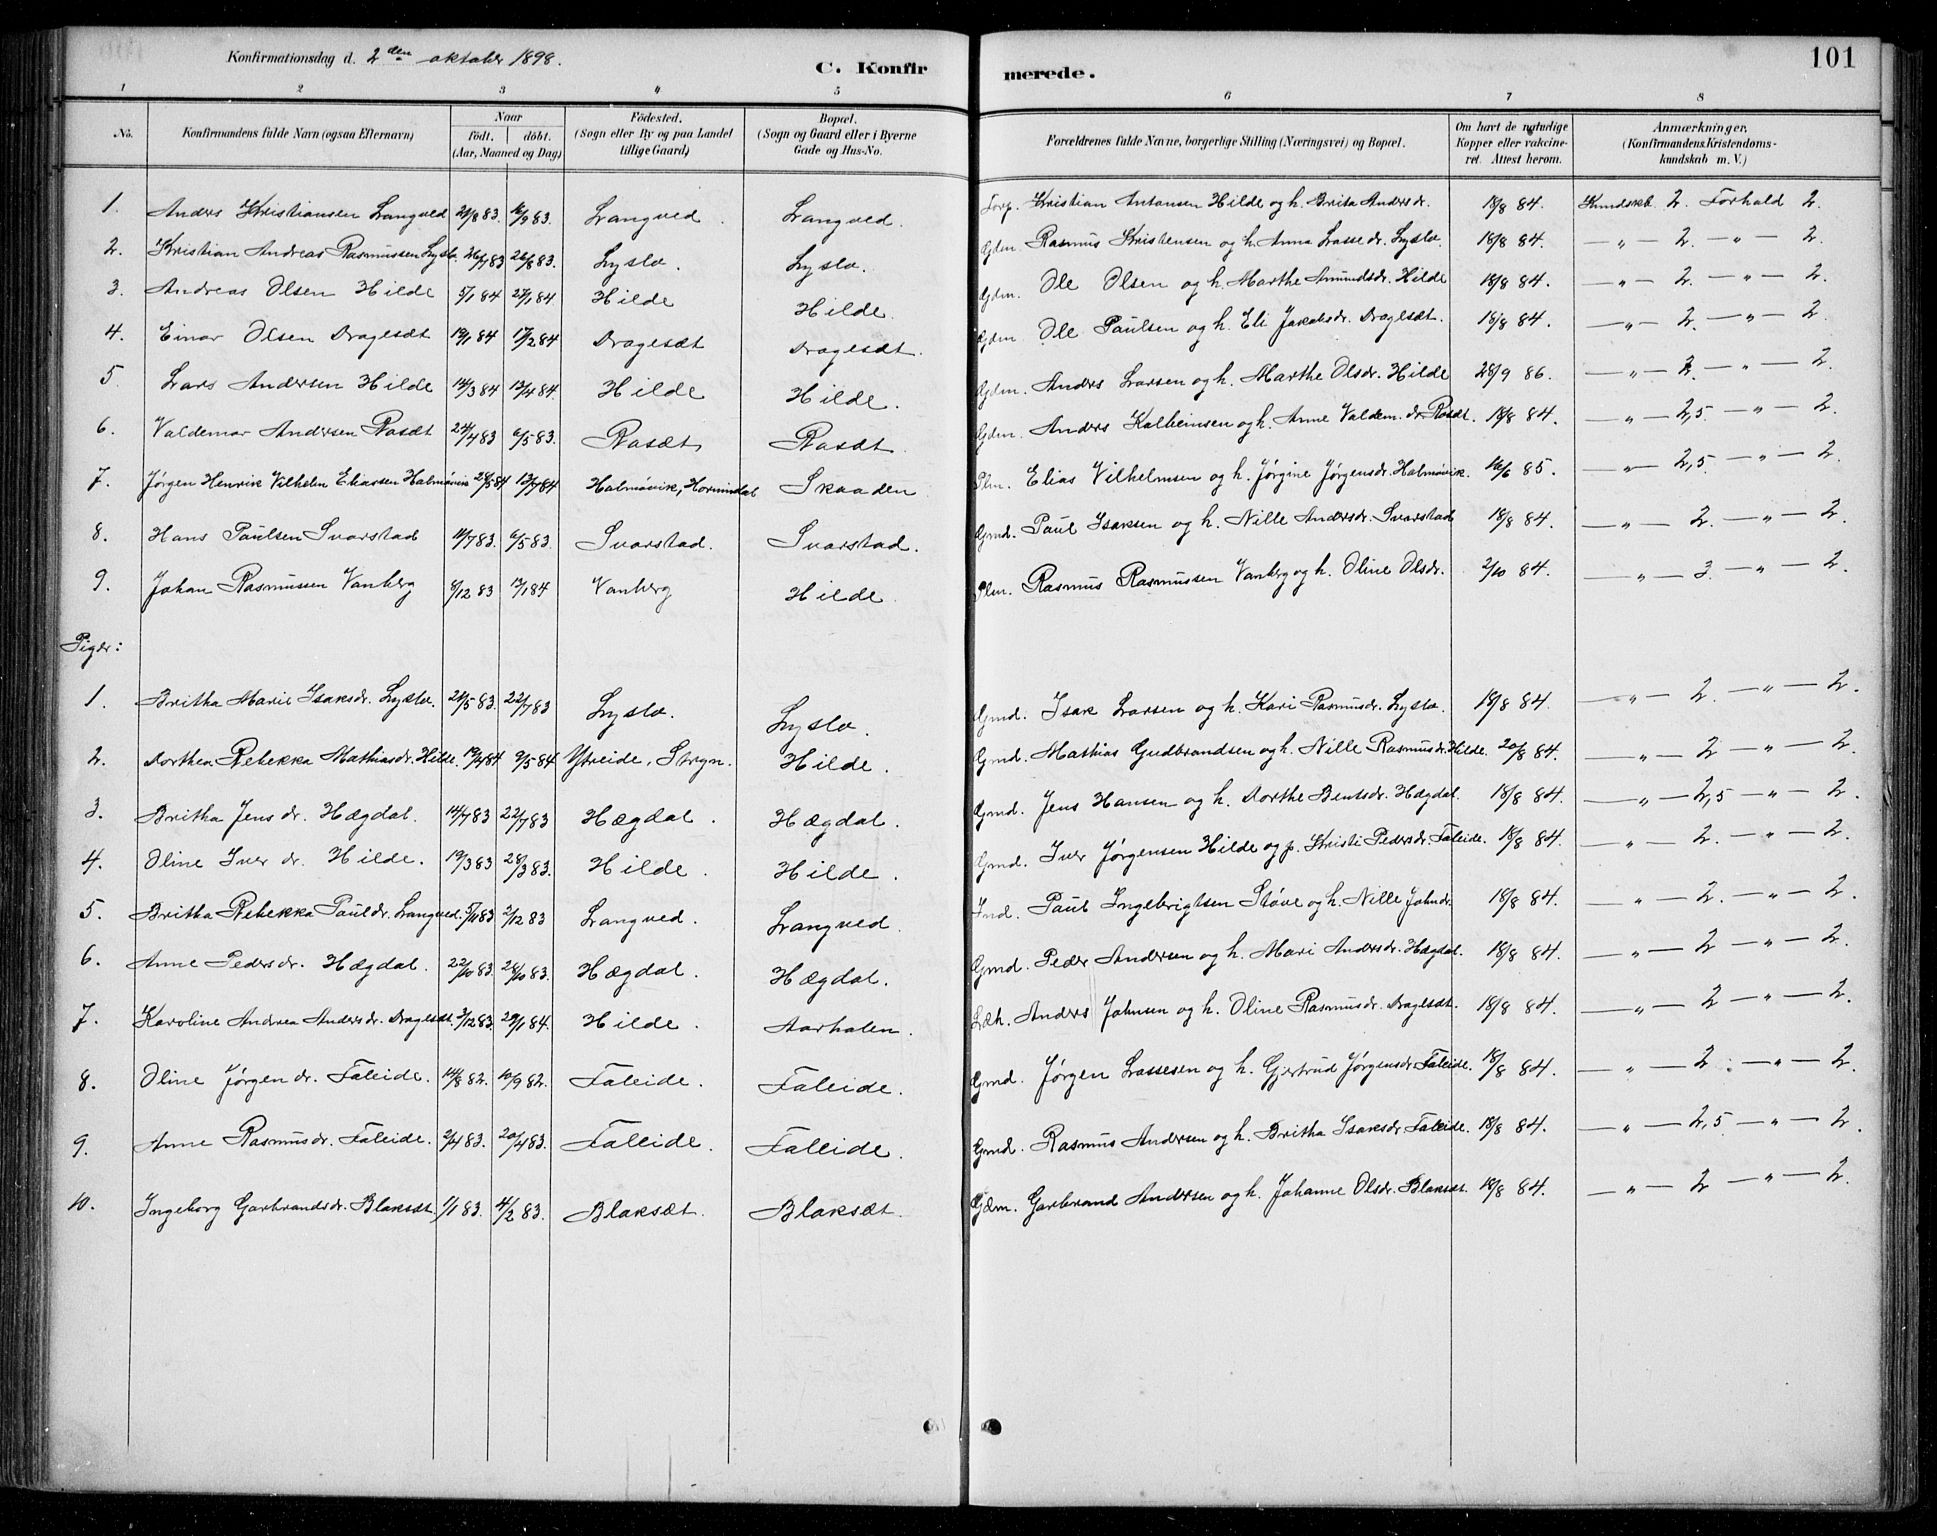 Konfirmationsdag d. 2den oktober 1898.
C. Konfir merede. 101
1 2 3 4 5 6 7 8
No. Konfirmandens fulde Navn (ogsaa Efternavn) Naar födt. döbt. (Aar, Maaned og Dag) Födested. (Sogn eller By og paa Landet tillige Gaard) Bopæl. (Sogn og Gaard eller i Byerne Gade og Hus-No. Forældrenes fulde Navne, borgerlige Stilling (Næringsvei) og Bopæl. Om havt de naturlige Kopper eller vakcineret. Attest herom. Anmærkninger. (Konfirmandens Kristendomskundskab m. V.)
1. Anders Kristiansen Langved /8 83. /9 83. Langved. Langved. Forp. Kristian Antonsen Hilde og h. Brita Andersdr. 18/8 84. Kundskb. 2. Forhold 2.
2. Kristian Andreas Rasmussen Lyslo. 26/7 83 26/8 83. Lyslo. Lyslo. Gdm. Rasmus Kristensen og h. Anna Lassedr. Lyslo. 18/8 84. — " — 2. — " — 2.
3. Andreas Olsen Hilde 5/1 84 27/1 84 Hilde Hilde. Gdm. Ole Olsen og h. Marthe Amundsdr. Hilde 18/8 84. — " — 2. — " — 2.
4. Einar Olsen Dragesæt 19/1 84 17/2 84 Dragesæt Dragesæt. Gdm. Ole Paulsen og h. Eli Jakobsdr. Dragesæt. 18/8 84. — " — 2. — " — 2.
5. Lars Andersen Hilde 14/3 84 13/4 84. Hilde Hilde. Gdm. Anders Larsen og h. Marthe Olsdr. Hilde 28/9 86. — " — 2. — " — 2.
6. Valdemar Andersen Rasæt 24/4 83 6/5 83. Rasæt Rasæt. Gdm. Anders Kolbeinsen og h. Anne Valdem.dr. Rasæt. 18/8 84. — " — 2,5 — " — 2.
7. Jørgen Henrik Vilhelm Eliassen Halmøvik /5 84 13/7 84 Halmøvik, Hornindal Skaaden Plm. Elias Vilhelmsen og h. Jørgine Jørgensdr. Halmøvik. 16/6 85. — " — 2,5. — " — 2.
8. Hans Paulsen Svarstad /7 83. 6/5 83. Svarstad. Svarstad. Gmd. Paul Isaksen og h. Nille Andersdr. Svarstad 18/8 84. — " — 2. — " — 2.
9. Johan Rasmussen Vanberg /12 83 13/1 84 Vanberg Hilde Plm. Rasmus Rasmussen Vanberg og h. Oline Olsdr. 2/10 84. — " — 3. — " — 2.
Piger:
1. Britha Marie Isaksdr. Lyslo. 21/5 83. 22/7 83 Lyslo. Lyslo. Gmd. Isak Larsen og h. Kari Rasmusdr. Lyslo. 18/8 84. — " — 2. — " — 2.
2. Dorthea Rebekka Mathiasdr. Hilde. 19/4 84 9/5 84 Ytreide, Stryn. Hilde. Gmd. Mathias Gudbrandsen og h. Nille Rasmusdr. Hilde. 20/8 84. — " — 2 — " — 2.
3. Britha Jensdr. Hægdal. 14/7 83 22/7 83 Hægdal. Hægdal. Gmd. Jens Hansen og h. Dorthe Bentsdr. Hægdal. 18/8 84. — " — 2,5 — " — 2.
4. Oline Iverdr. Hilde. 19/3 83 28/3 83. Hilde. Hilde. Gmd. Iver Jørgensen Hilde og p. Kristi Pedersdr. Faleide. 18/8 84. — " — 2. — " — 2.
5. Britha Rebekka Pauldr. Langved. 5/11 83 2/12 83 Langved. Langved. Ind. Paul Ingebrigtsen Støve og h. Nille Johndr. 18/8 84. — " — 2. — " — 2.
6. Anne Pedersdr. Hægdal. 22/10 83. 28/10 83. Hægdal. Hægdal. Gmd. Peder Andersen og h. Mari Andersdr. Hægdal. 18/8 84. — " — 2 — " — 2.
7. Karoline Andrea Andersdr. Dragesæt. 3/12 83. 29/1 84. Hilde. Aarholen. Læh. Anders Johnsen og h. Oline Rasmusdr. Dragesæt. 18/8 84. — " — 2 — " — 2.
8. Oline Jørgendr. Faleide. 14/8 82. 10/9 82. Faleide. Faleide. Gmd. Jørgen Lassesen og h. Gjertrud Jørgensdr. Faleide. 18/8 84. — " — 2. — " — 2.
9. Anne Rasmusdr. Faleide. 2/4 83. 20/4 83. Faleide. Faleide. Gmd. Rasmus Andersen og h. Britha Isaksdr Faleide. 18/8 84. — " — 2,5 — " — 2.
10. Ingeborg Garbrandsdr. Blaksæt. 1/1 83. 4/2 83. Blaksæt. Blaksæt. Gdm. Garbrand Andersen og h. Johanne Olsdr. Blaksæt. 18/8 84. — " — 2 — " — 2.